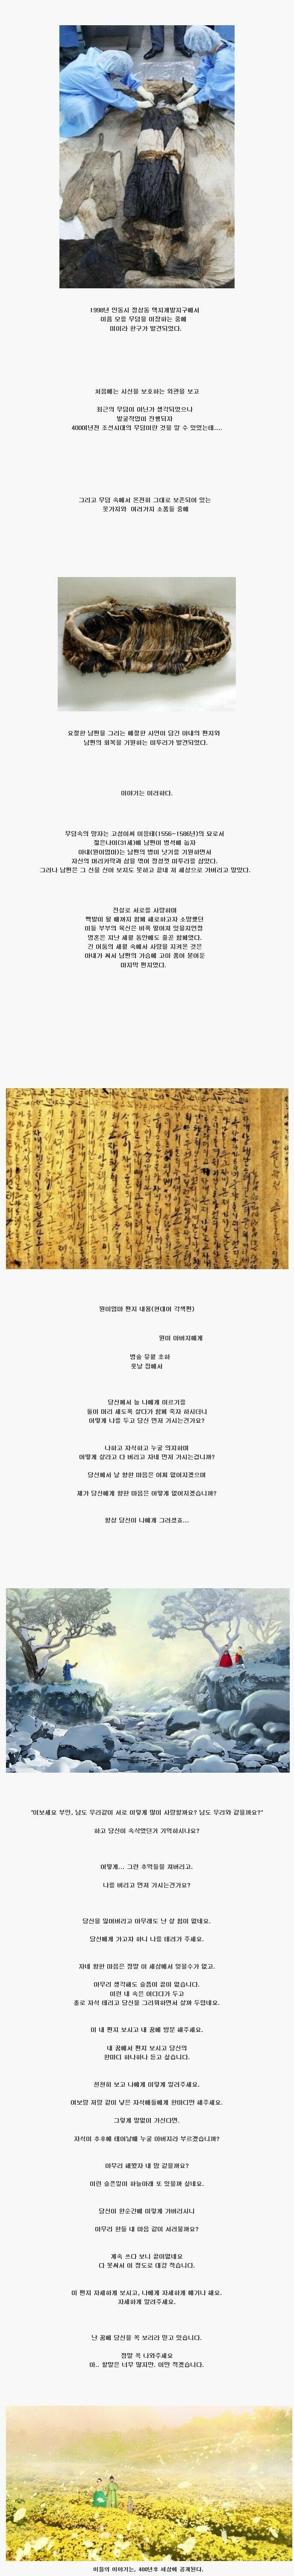 1998년 안동시 정상동 택지개발지구에서
이름 모를 무덤을 이장하는 중에
미이라 한구가 발견되었다.
처음에는 시신을 보호하는 외관을 보고
최근의 무덤이 아닌가 생각되었으나
발굴작업이 진행되자
400여년전 조선시대의 무덤이란 것을 알 수 있었는데....
그리고 무덤 속에서 온전히 그대로 보존되어 있는
옷가지와 여러가지 소품들 중에
요절한 남편을 그리는 애절한 사연이 담긴 아내의 편지와
남편의 회복을 기원하는 미투리가 발견되었다.
이야기는 이러하다.
무덤속의 망자는 고성이씨 이응태(1556~1586년)의 묘로서
젊은나이(31세)에 남편이 병석에 눕자
아내(원이엄마)는 남편의 병이 낫기를 기원하면서
자신의 머리카락과 삼을 엮어 정성껏 미투리를 삼았다.
그러나 남편은 그 신을 신어 보지도 못하고 끝내 저 세상으로 가버리고 말았다.
진실로 서로를 사랑하며
백발이 될 때까지 함께 해로하고자 소망했던
이들 부부의 육신은 비록 떨어져 있을지언정
영혼은 지난 세월 동안에도 줄곧 함께였다.
긴 어둠의 세월 속에서 사랑을 지켜온 것은
아내가 써서 남편의 가슴에 고이 품어 묻어둔
마지막 편지였다.
원이엄마 편지 내용(현대어 각색편)
원이 아버지에게
병술 유월 초하
룻날 집에서
당신께서 늘 나에게 이르기를
둘이 머리 세도록 살다가 함께 죽자 하시더니
어떻게 나를 두고 당신 먼저 가시는건가요?
나하고 자식하고 누굴 의지하며
어떻게 살라고 다 버리고 자네 먼저 가시는겁니까?
당신께서 날 향한 마음은 어찌 없어지겠으며
제가 당신에게 향한 마음은 어떻게 없어지겠습니까?
항상 당신이 나에게 그러셨죠...
"이보세요 부인, 남도 우리같이 서로 이렇게 많이 사랑할까요? 남도 우리와 같을까요?"
하고 당신이 속삭였던거 기억하시나요?
어떻게... 그런 추억들을 져버리고.
나를 버리고 먼저 가시는건가요?
당신을 잃어버리고 아무래도 난 살 힘이 없네요.
당신에게 가고자 하니 나를 데려가 주세요.
자네 향한 마음은 정말 이 세상에서 잊을수가 없고.
아무리 생각해도 슬픔이 끝이 없습니다.
이런 내 속은 어디다가 두고
홀로 자식 데리고 당신을 그리워하면서 살까 두렵네요.
이 내 편지 보시고 내 꿈에 방문 해주세요.
내 꿈에서 편지 보시고 당신의
한마디 하나하나 듣고 싶습니다.
천천히 보고 나에게 이렇게 알려주세요.
여보랑 저랑 같이 낳은 자식애들에게 한마디만 해주세요.
그렇게 말없이 가신다면.
자식이 추후에 태어날때 누굴 아버지라 부르겠습니까?
아무리 해봤자 내 맘 같을까요?
이런 슬픈일이 하늘아래 또 있을까 싶네요.
당신이 한순간에 이렇게 가버리시니
아무리 한들 내 마음 같이 서러울까요?
계속 쓰다 보니 끝이없네요
다 못써서 이 정도로 대강 적습니다.
이 편지 자세하게 보시고, 나에게 자세하게 얘기나 해요.
자세하게 알려주세요.
난 꿈에 당신을 꼭 보리라 믿고 있습니다.
정말 꼭 나와주세요
아.. 할말은 너무 많지만. 이만 적겠습니다.
이들의 이야기는, 400년후 세상에 공개된다.